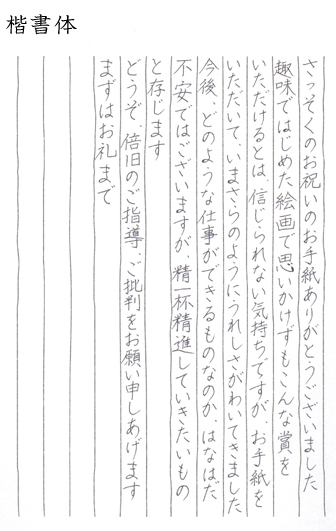 楷書体
さっそくのお祝いのお手紙ありがとうございました
趣味ではじめた絵画で思いかけずもこんな賞を
いただけるとは、信じられない気持ちですが、お手紙を
いただいて、いまさらのようにうれしさがわいてきました
今後、どのような仕事ができるものなのか、はなはだ
不安ではございますが、精一杯精進していきたいもの
と存じます
どうぞ、倍旧のご指導、ご批判をお願い申しあげます
まずはお礼まで